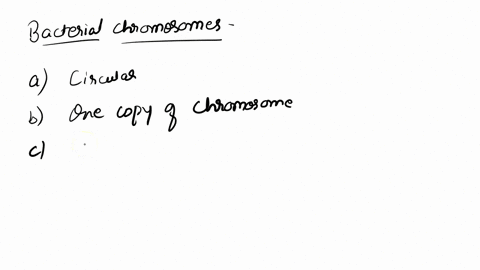 Bacterial chromosomes -
a) Circular
b) One copy of chromosome
c)